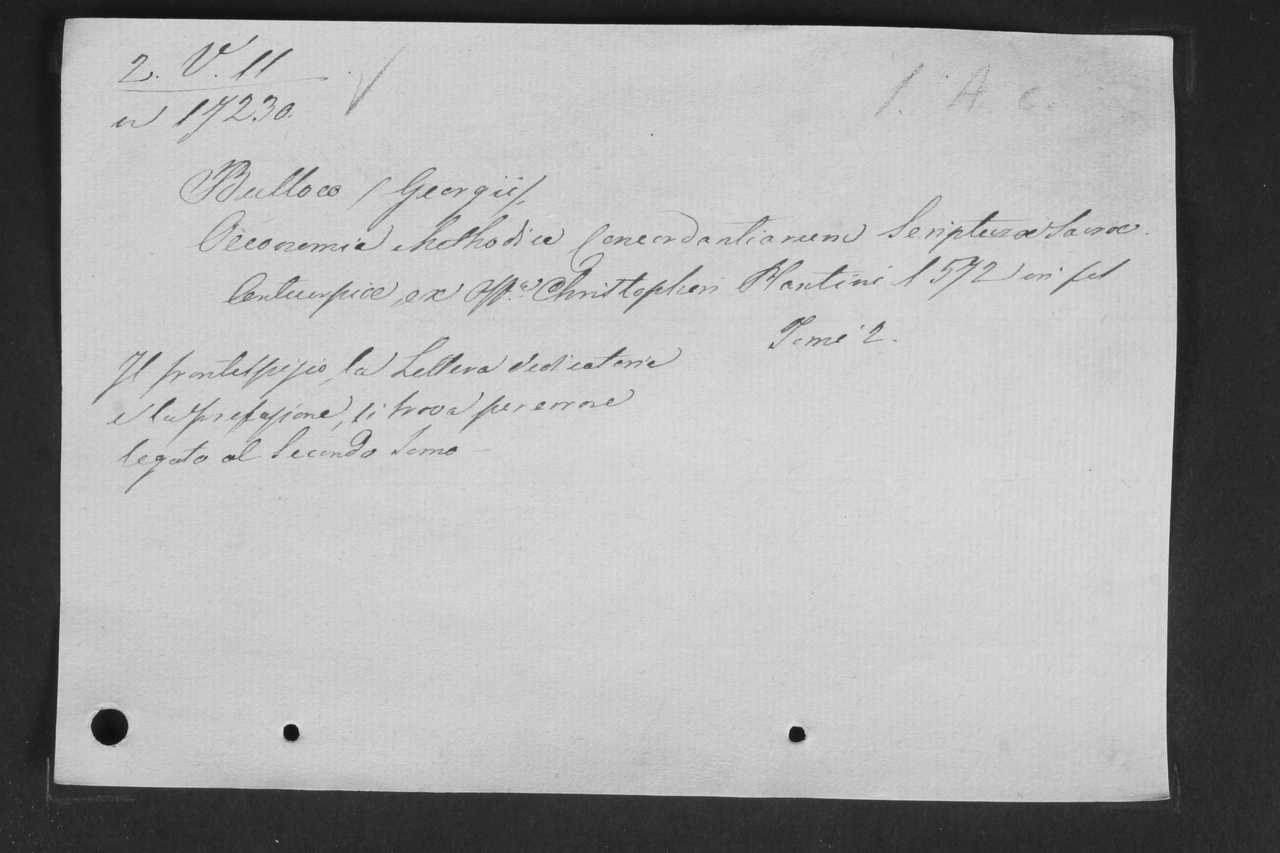 2. V. 11
n 17230.
1. A c.
Bulloco (Georgii),
Oeconomia Methodica Concordantiarum Scripturæ Sacræ.
Antuerpiæ, ex Offna Christophori Plantini 1572 in fol
Tomi 2.
Il frontespizio, la Lettera dedicatoria
e la prefazione, si trova per errore
legato al Secondo Tomo